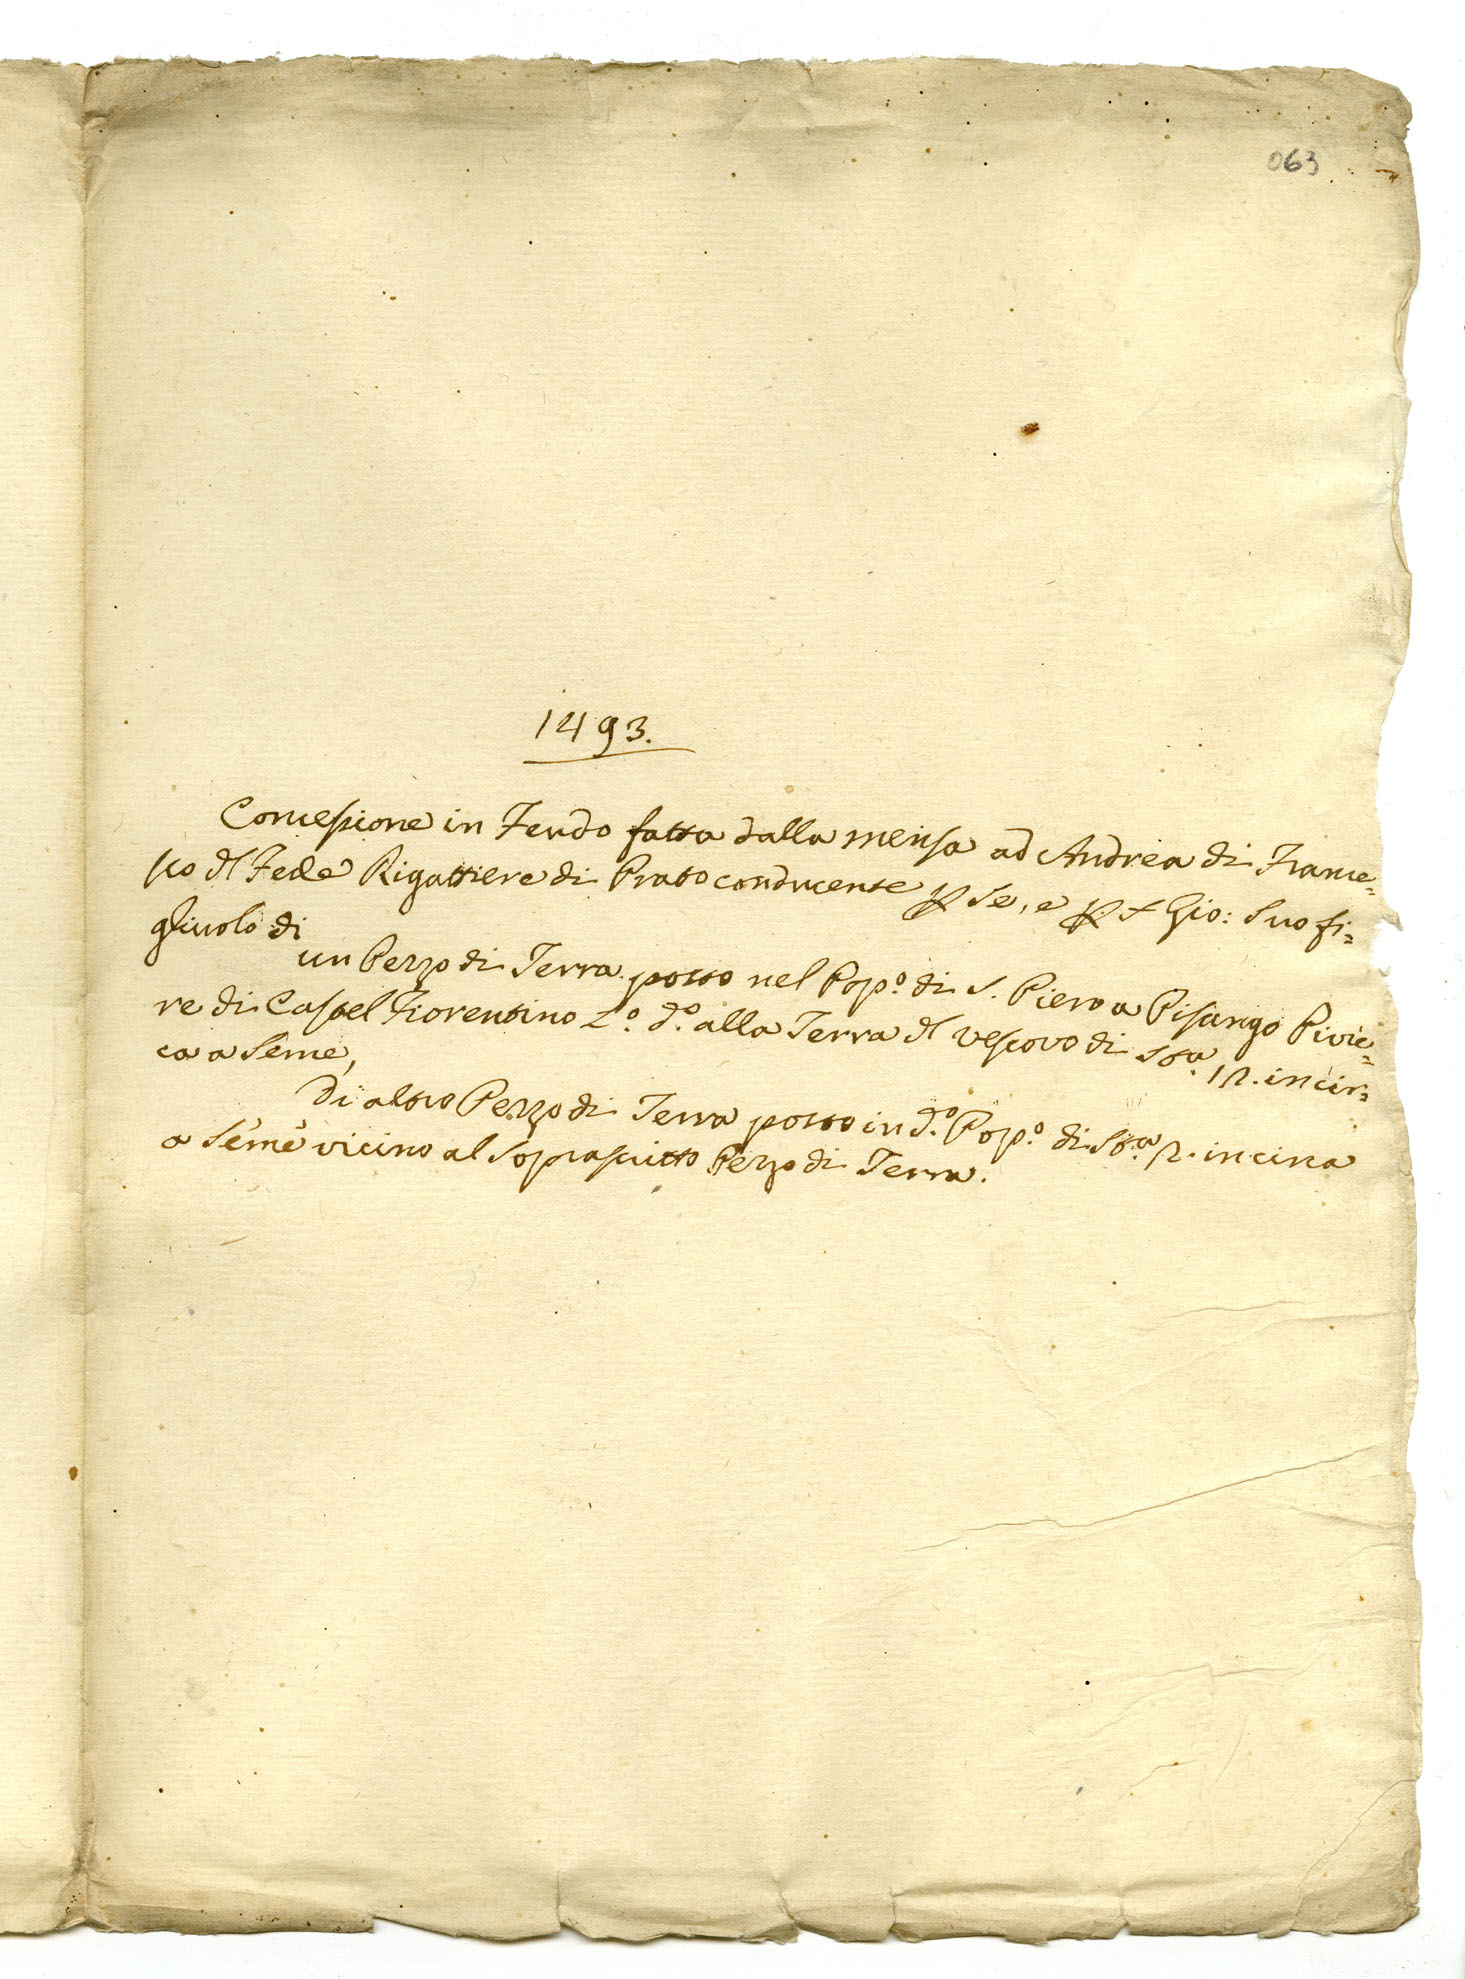 063
1493.
Concessione in Feudo fatta dalla mensa ad Andrea di France=
sco dl Fede Rigattiere di Prato conducente p se, e p Gio: Suo fi=
gliuolo di
un Pezzo di Terra posto nel Pop.º di S. Piero a Pisango Pivie=
re di Castel Fiorentino L.º d.º alla Terra dl Vescovo di Sta. 12. incir=
ca a Seme,
Di altro Pezzo di Terra posto in d.º Pop.º di Sta. 2. incirca
a Seme vicino al Soprascritto Pezzo di Terra.